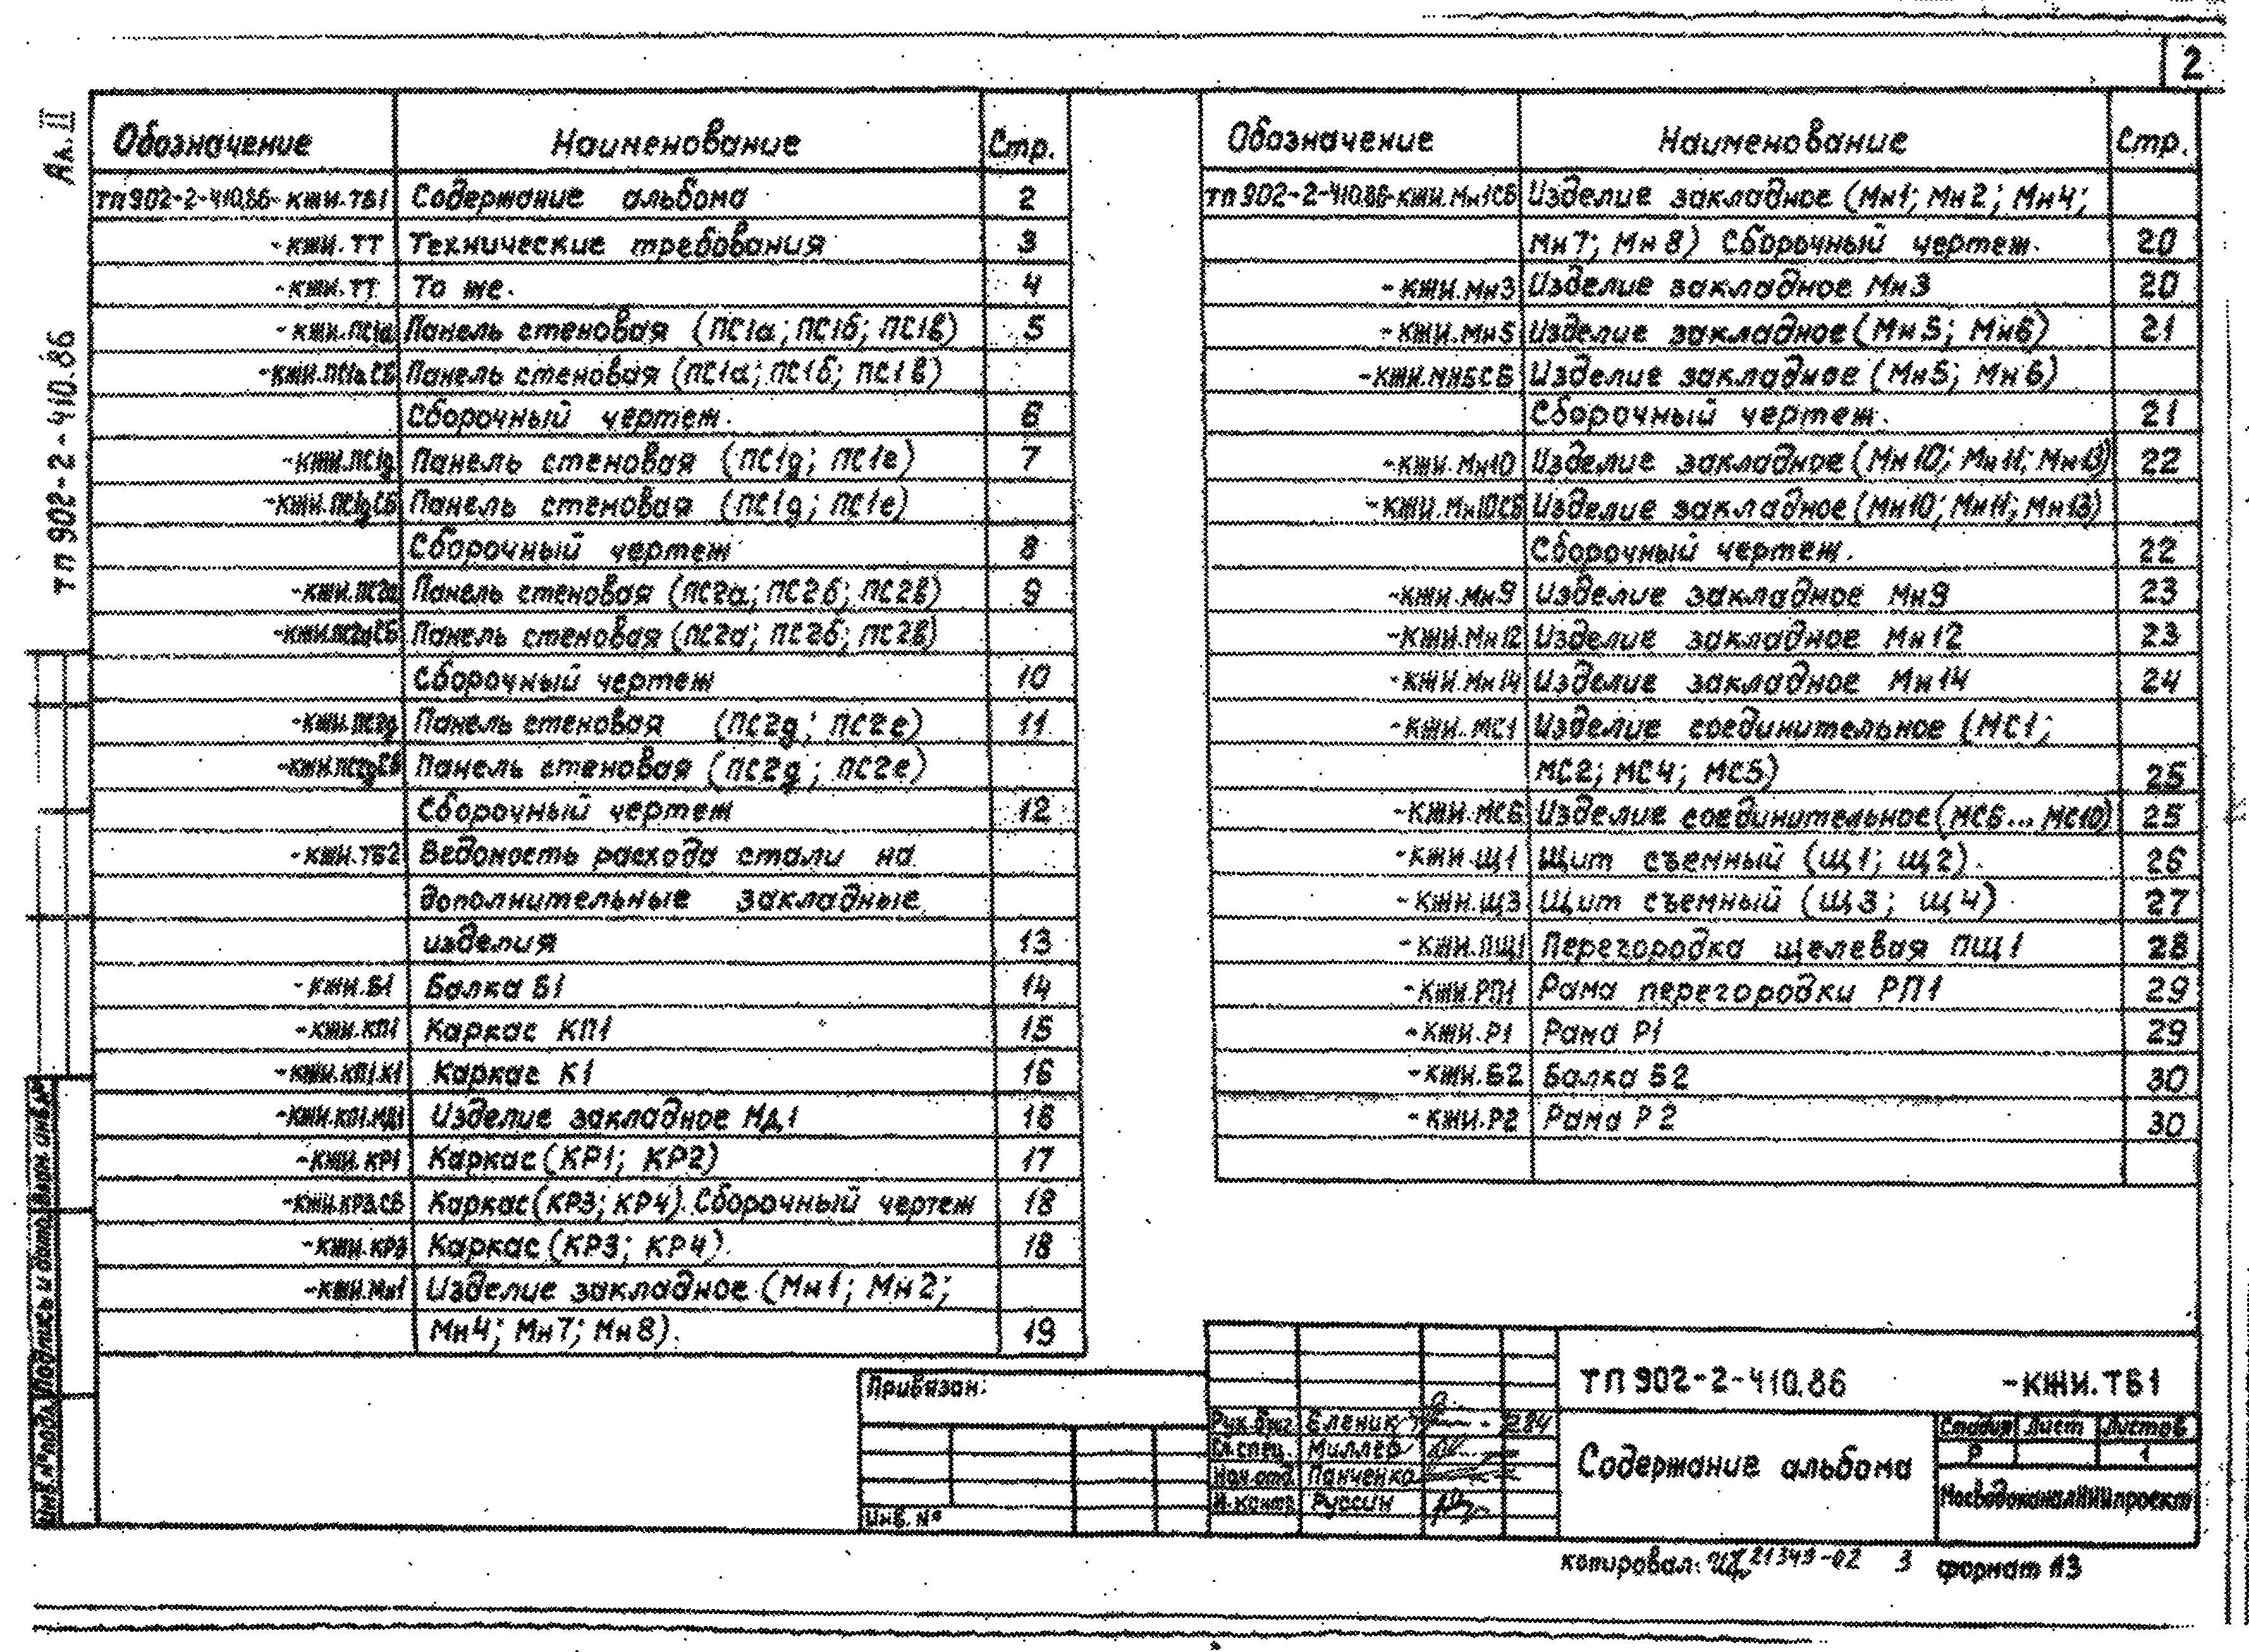 2
Ал. II
ТП 902-2-410.86
Обозначение Наименование Стр.
ТП 902-2-410.86-КЖИ.ТБ1 Содержание альбома 2
-КЖИ.ТТ Технические требования 3
-КЖИ.ТТ То же. 4
-КЖИ.ПС1а Панель стеновая (ПС1а; ПС1б; ПС1в) 5
-КЖИ.ПС1аСБ Панель стеновая (ПС1а; ПС1б; ПС1в)
Сборочный чертеж. 6
-КЖИ.ПС1g Панель стеновая (ПС1g; ПС1е) 7
-КЖИ.ПС1gСБ Панель стеновая (ПС1g; ПС1е)
Сборочный чертеж 8
-КЖИ.ПС2а Панель стеновая (ПС2а; ПС2б; ПС2в) 9
-КЖИ.ПС2аСБ Панель стеновая (ПС2а; ПС2б; ПС2в)
Сборочный чертеж 10
-КЖИ.ПС2g Панель стеновая (ПС2g; ПС2е) 11
-КЖИ.ПС2gСБ Панель стеновая (ПС2g; ПС2е)
Сборочный чертеж 12
-КЖИ.ТБ2 Ведомость расхода стали на
дополнительные закладные
изделия 13
-КЖИ.Б1 Балка Б1 14
-КЖИ.КП1 Каркас КП1 15
-КЖИ.КП1.К1 Каркас К1 16
-КЖИ.КП1.МД1 Изделие закладное МД1 16
-КЖИ.КР1 Каркас (КР1; КР2) 17
-КЖИ.КР3.СБ Каркас (КР3; КР4). Сборочный чертеж 18
-КЖИ.КР3 Каркас (КР3; КР4). 18
-КЖИ.Мн1 Изделие закладное (Мн1; Мн2;
Мн4; Мн7; Мн8). 19
Обозначение Наименование Стр.
ТП 902-2-410.86-КЖИ.Мн1СБ Изделие закладное (Мн1; Мн2; Мн4;
Мн7; Мн8) Сборочный чертеж. 20
-КЖИ.Мн3 Изделие закладное Мн3 20
-КЖИ.Мн5 Изделие закладное (Мн5; Мн6) 21
-КЖИ.Мн5СБ Изделие закладное (Мн5; Мн6)
Сборочный чертеж. 21
-КЖИ.Мн10 Изделие закладное (Мн10; Мн11; Мн13) 22
-КЖИ.Мн10СБ Изделие закладное (Мн10; Мн11; Мн13)
Сборочный чертеж. 22
-КЖИ.Мн9 Изделие закладное Мн9 23
-КЖИ.Мн12 Изделие закладное Мн12 23
-КЖИ.Мн14 Изделие закладное Мн14 24
-КЖИ.МС1 Изделие соединительное (МС1;
МС2; МС4; МС5) 25
-КЖИ.МС6 Изделие соединительное (МС6... МС10) 25
-КЖИ.Щ1 Щит съемный (Щ1; Щ2). 26
-КЖИ.Щ3 Щит съемный (Щ3; Щ4) 27
-КЖИ.ПЩ1 Перегородка щелевая ПЩ1 28
-КЖИ.РП1 Рама перегородки РП1 29
-КЖИ.Р1 Рама Р1 29
-КЖИ.Б2 Балка Б2 30
-КЖИ.Р2 Рама Р2 30
Взам. инв.№
Подпись и дата
Инв.№подл.
Привязан:
Инв. №
Рук. бриг. Еленик
Гл.спец. Миллер
Нач.отд. Панченко
Н.контр. Руссин
ТП 902-2-410.86 -КЖИ.ТБ1
Содержание альбома
Стадия Лист Листов
Р 1
МосводоканалНИИпроект
копировал: 21343-02 3 формат А3